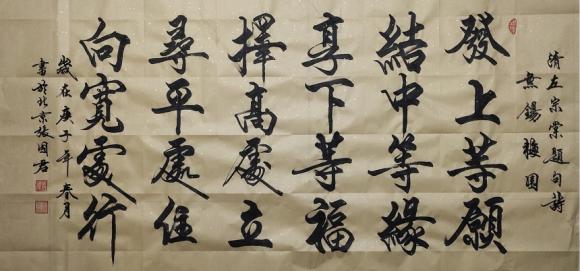 清左宗棠題句詩
無錫梅園
發上等願
結中等緣
享下等福
擇高處立
尋平處住
向寬處行
歲在庚子年春月
書於北京